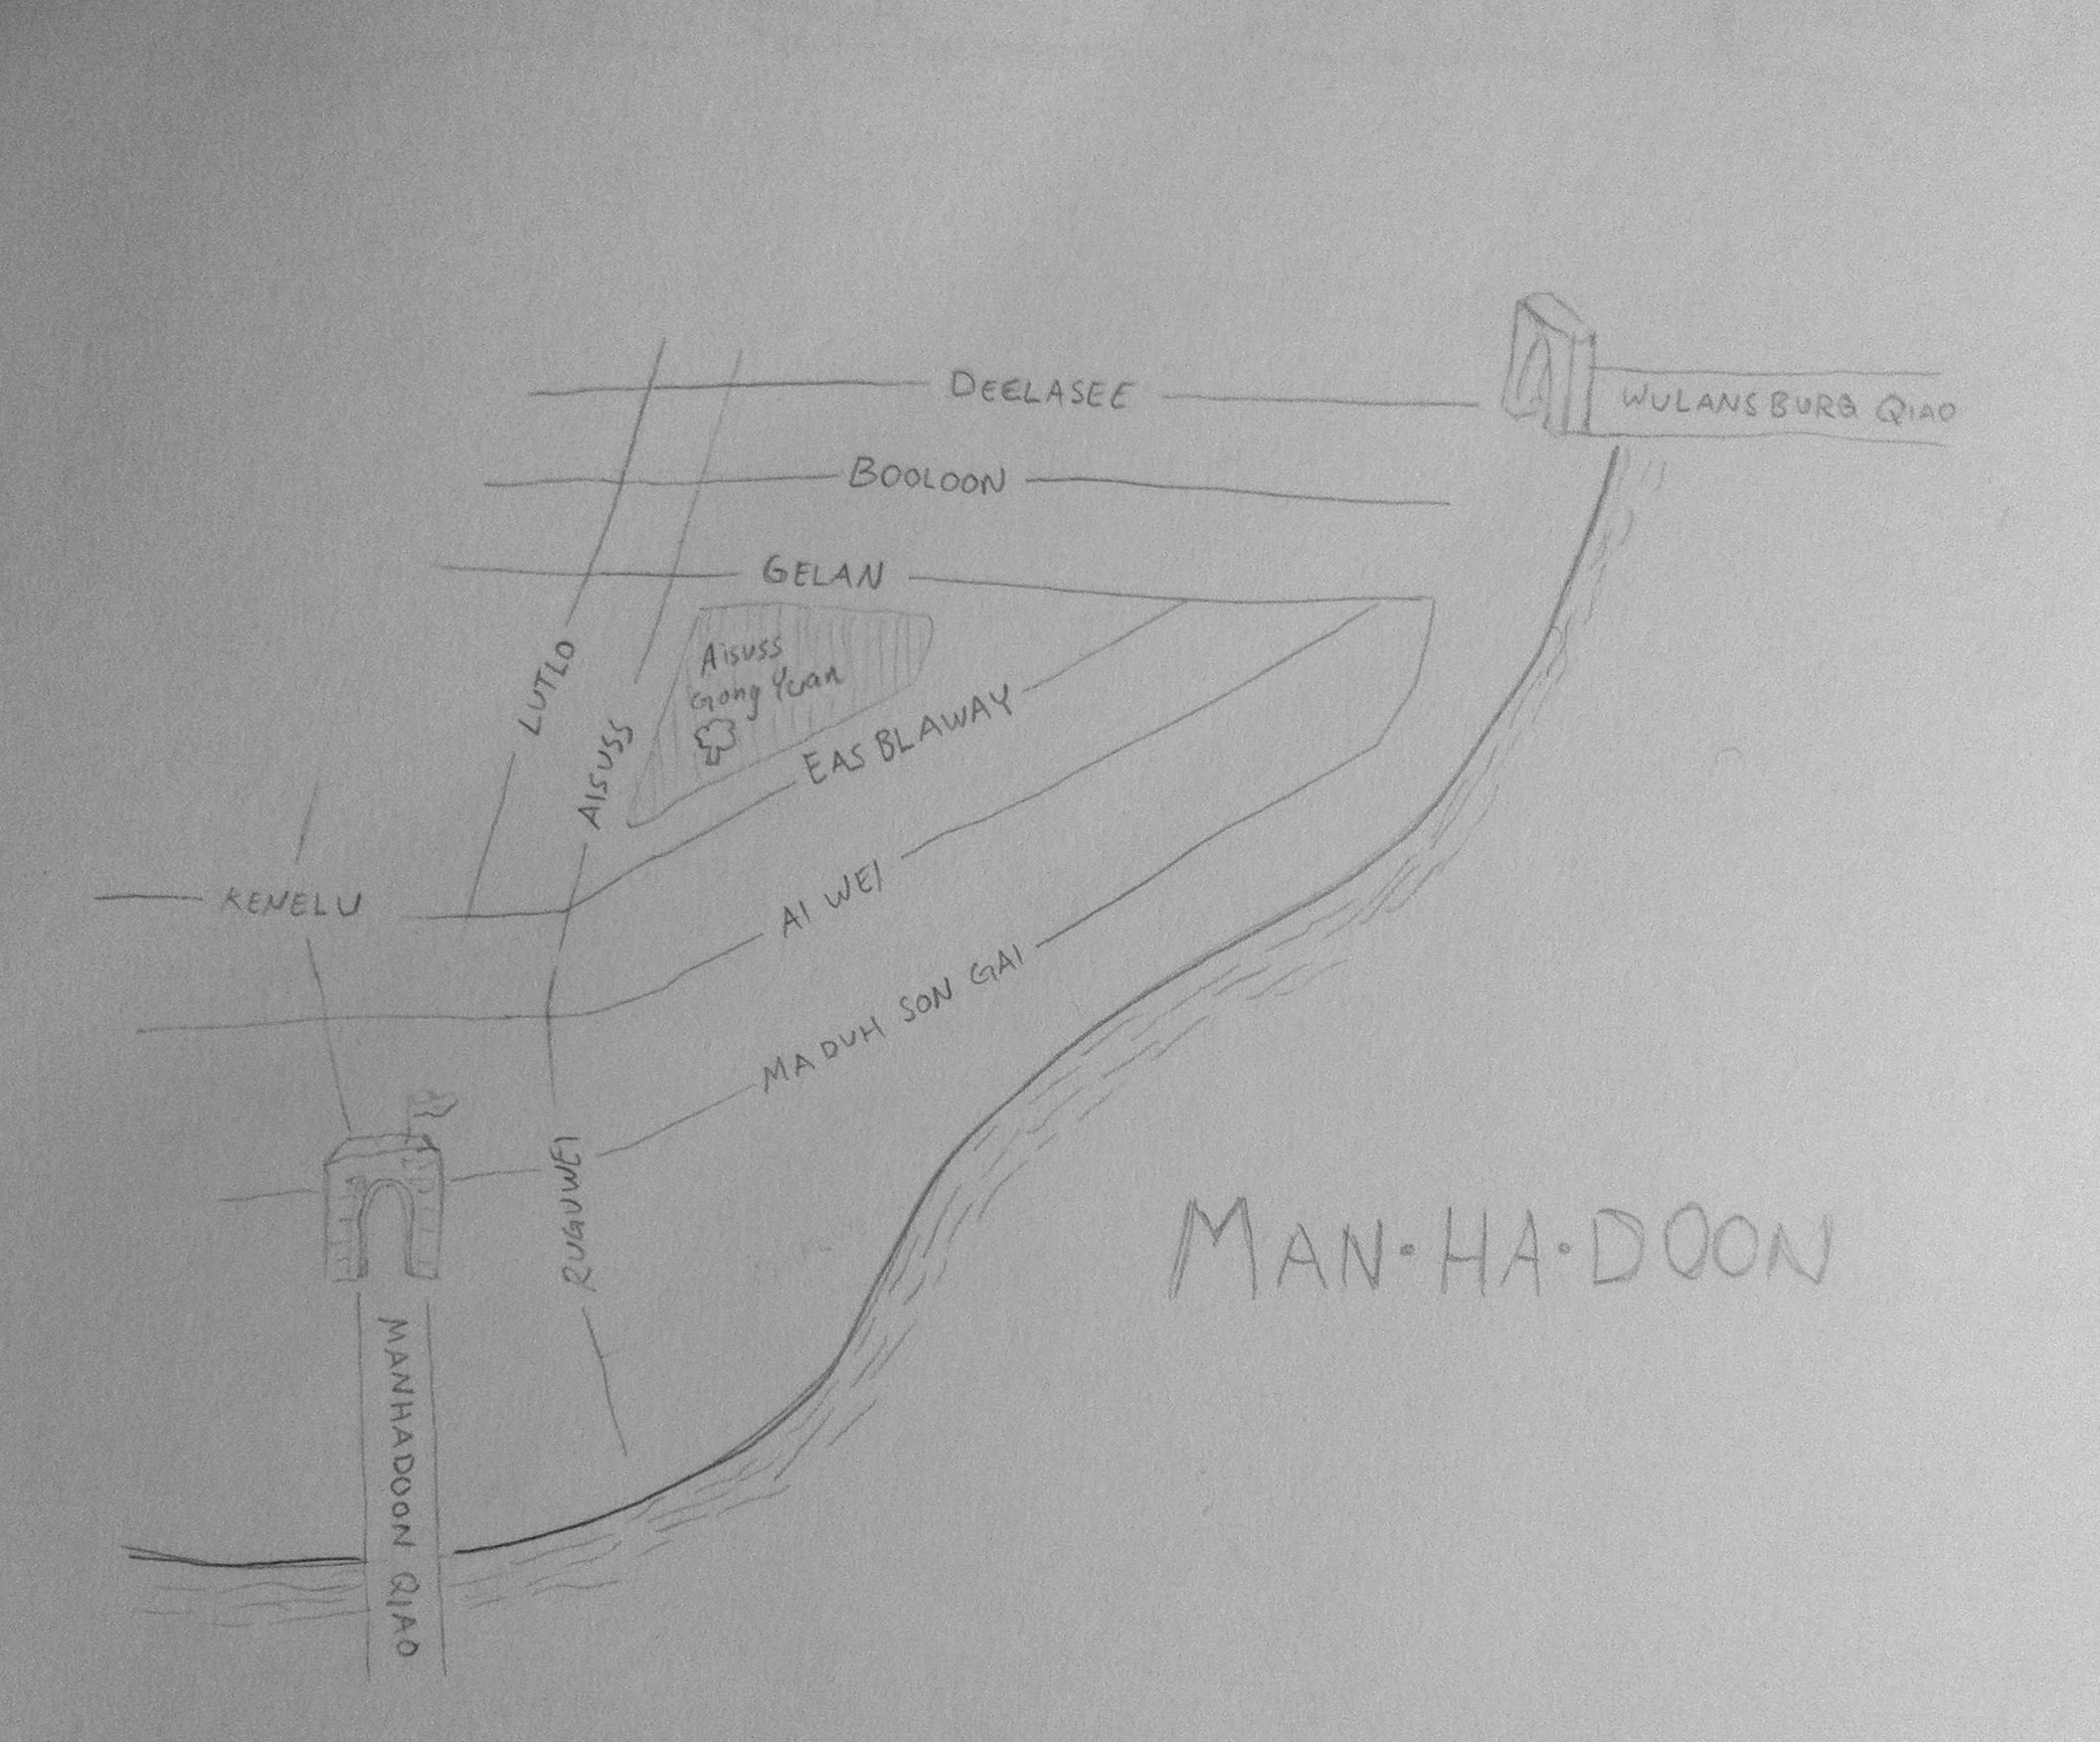 DEELASEE
WULANSBURG QIAO
BOOLOON
GELAN
LUTLO
Aisuss
Gong Yuan
AISUSS
EAS BLAWAY
KENELU
AI WEI
MADUH SON GAI
RUGUWEI
MAN·HA·DOON
MANHADOON QIAO